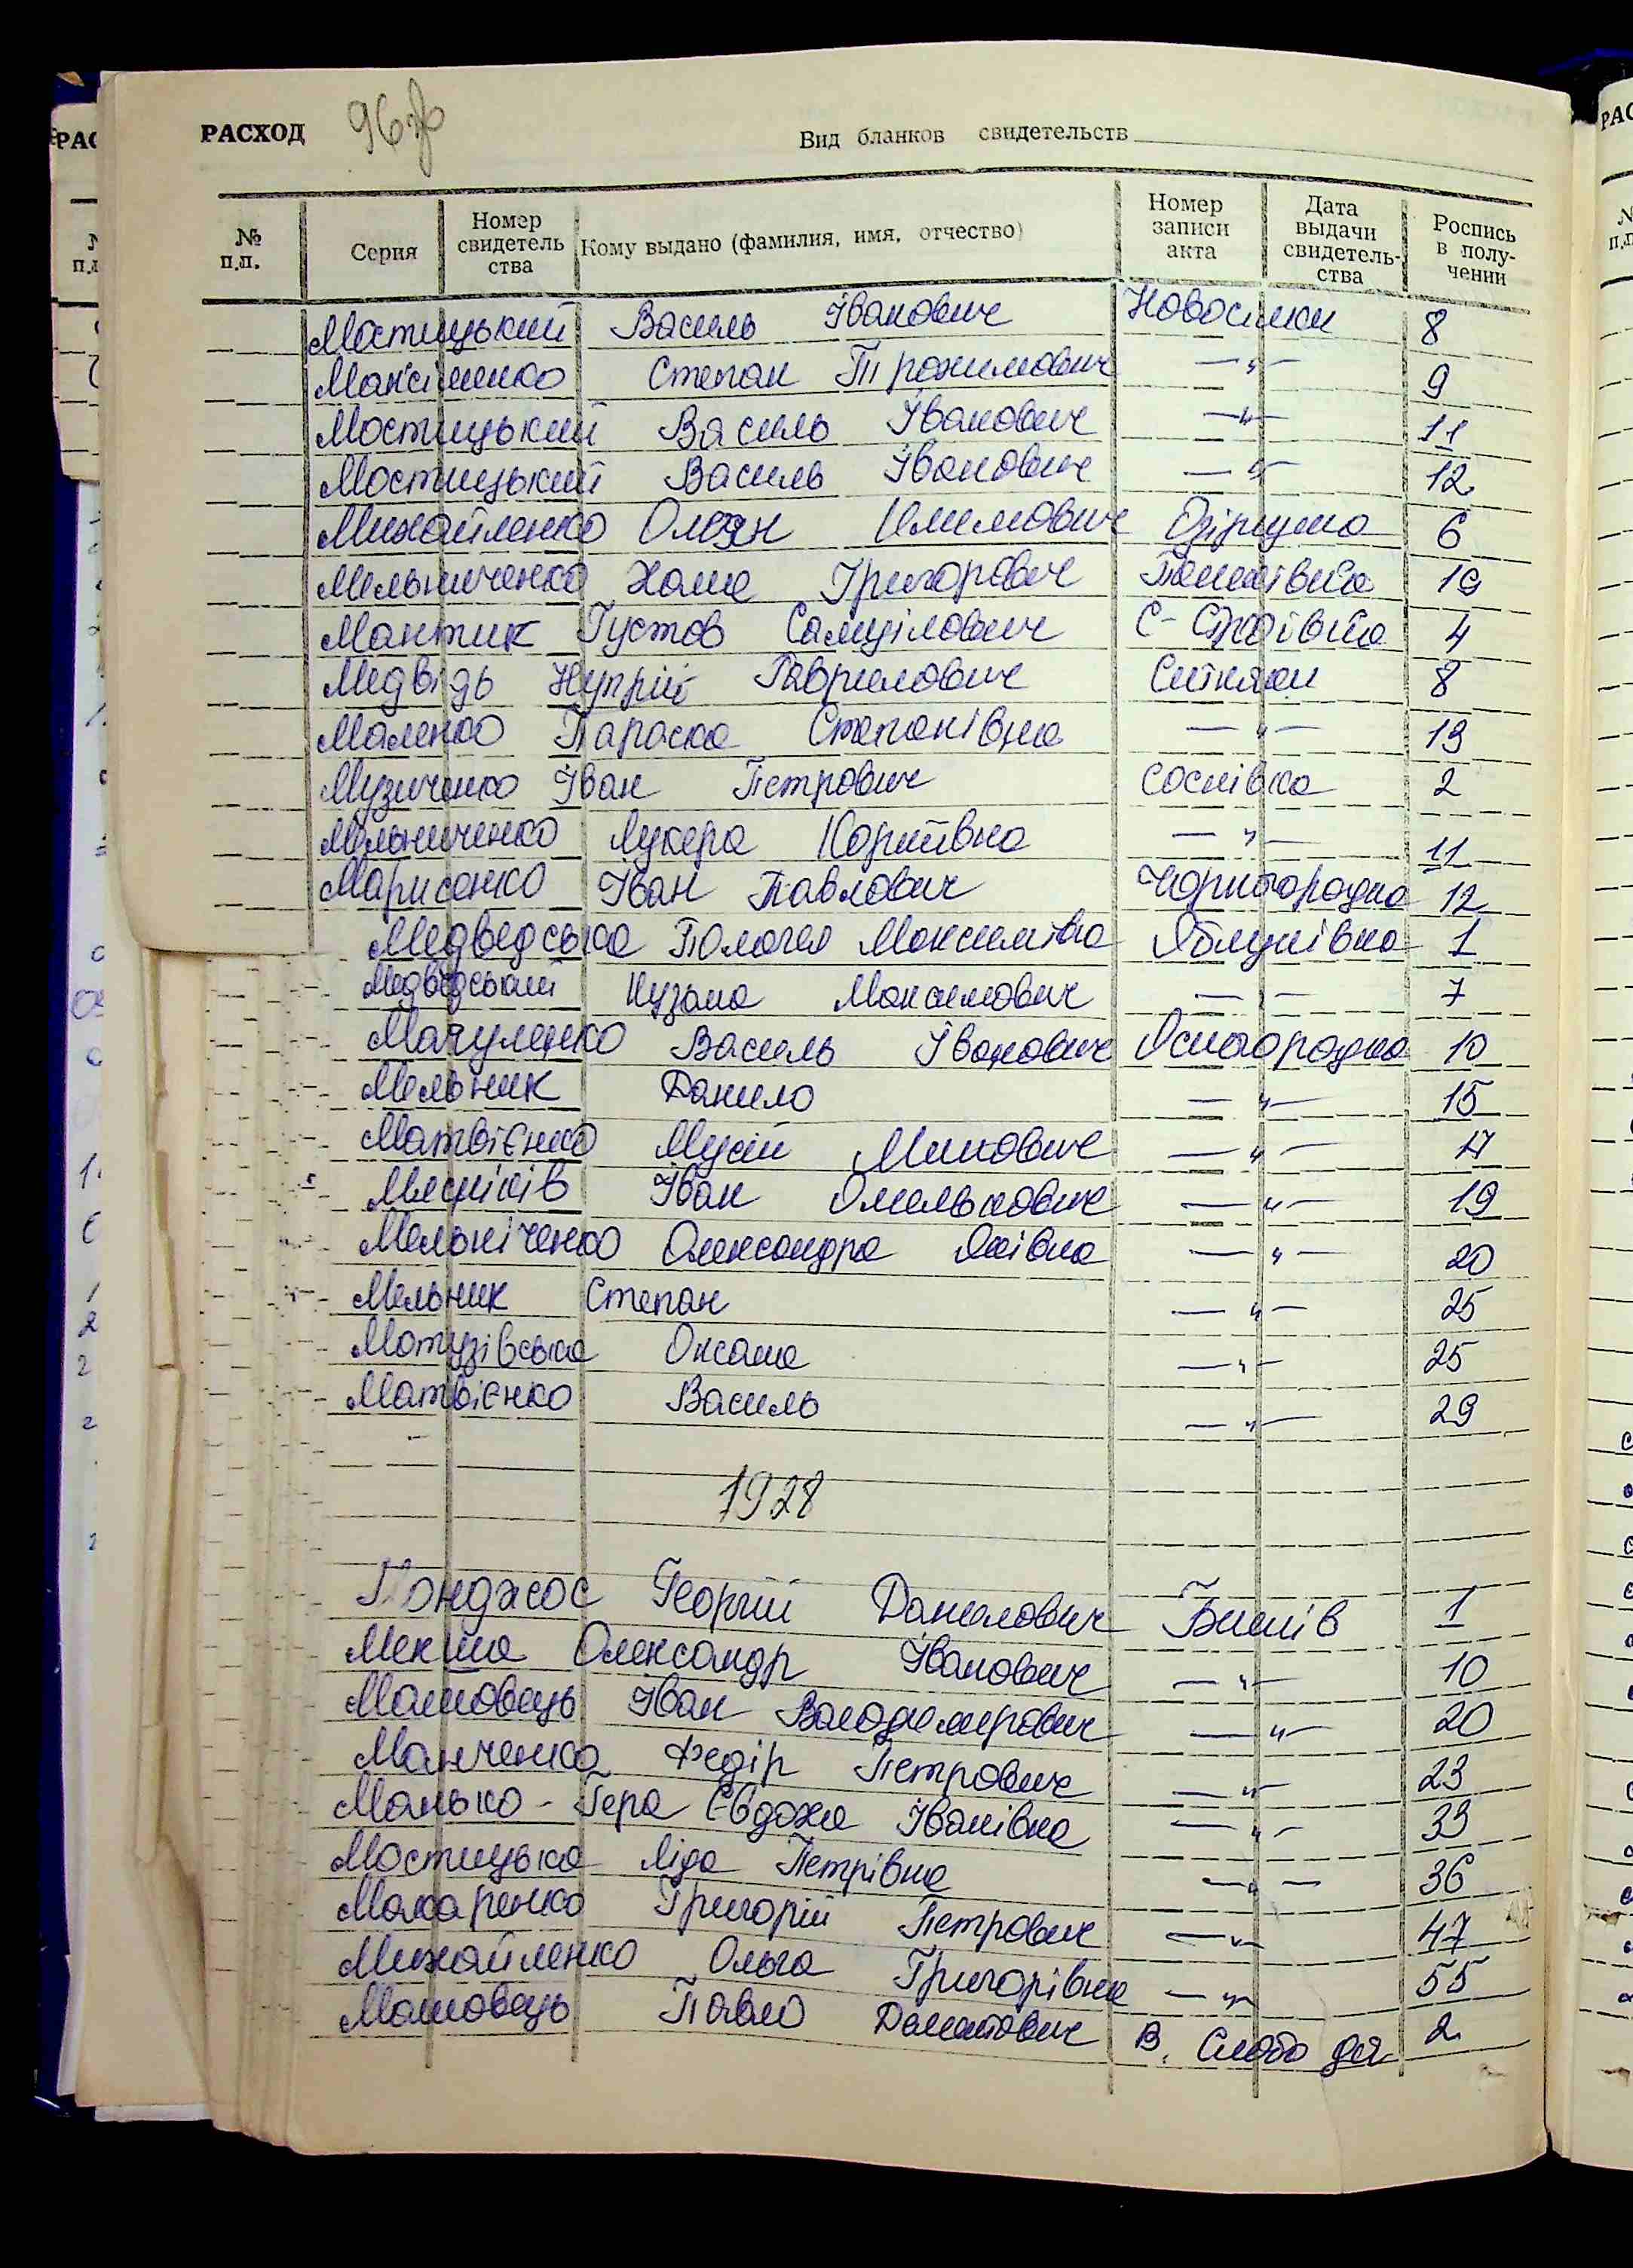 РАСХОД 96 зв
Вид бланков свидетельств
№ п.п. Серия Номер свидетельства Кому выдано (фамилия, имя, отчество) Номер записи акта Дата выдачи свидетельства Роспись в получении
Мостицький Василь Іванович Новосілки 8
Максіменко Степан Трохимович —"— 9
Мостицький Василь Іванович —"— 11
Мостицький Василь Іванович —"— 12
Михайленко Климович Озірщина 6
Мельниченко Хома Григорович 19
Мантик Густов Самуілович 4
Медвідь Купрій Гаврилович Ситняки 8
Маленко Параска Степанівна —"— 13
Музиченко Іван Петрович Соснівка 2
Мельниченко Лукера Корніївна —"— 11
Марисенко Іван Павлович Чорногородка 12
Медведська Пологея Максимівна Яблунівка 1
Медведський Кузьма Максимович —"— 7
Мачуленко Василь Іванович Ясногородка 10
Мельник Данило —"— 15
Матвієнко Мусій Минович —"— 17
Мясніків Іван Омелькович —"— 19
Мельніченко Олександра Яківна —"— 20
Мельник Степан —"— 25
Мотузівська Оксана —"— 25
Матвієнко Василь —"— 29
1928
Монджос Георгій Данилович Бишів 1
Мекша Олександр Іванович —"— 10
Маковець Іван Володимирович —"— 20
Манченко Федір Петрович —"— 23
Манько - Гера Євдоха Іванівна —"— 33
Мостицька Ліда Петрівна —"— 36
Макаренко Григорій Петрович —"— 47
Михайленко Ольга Григорівна —"— 55
Маковець Павло В. Слободя 2